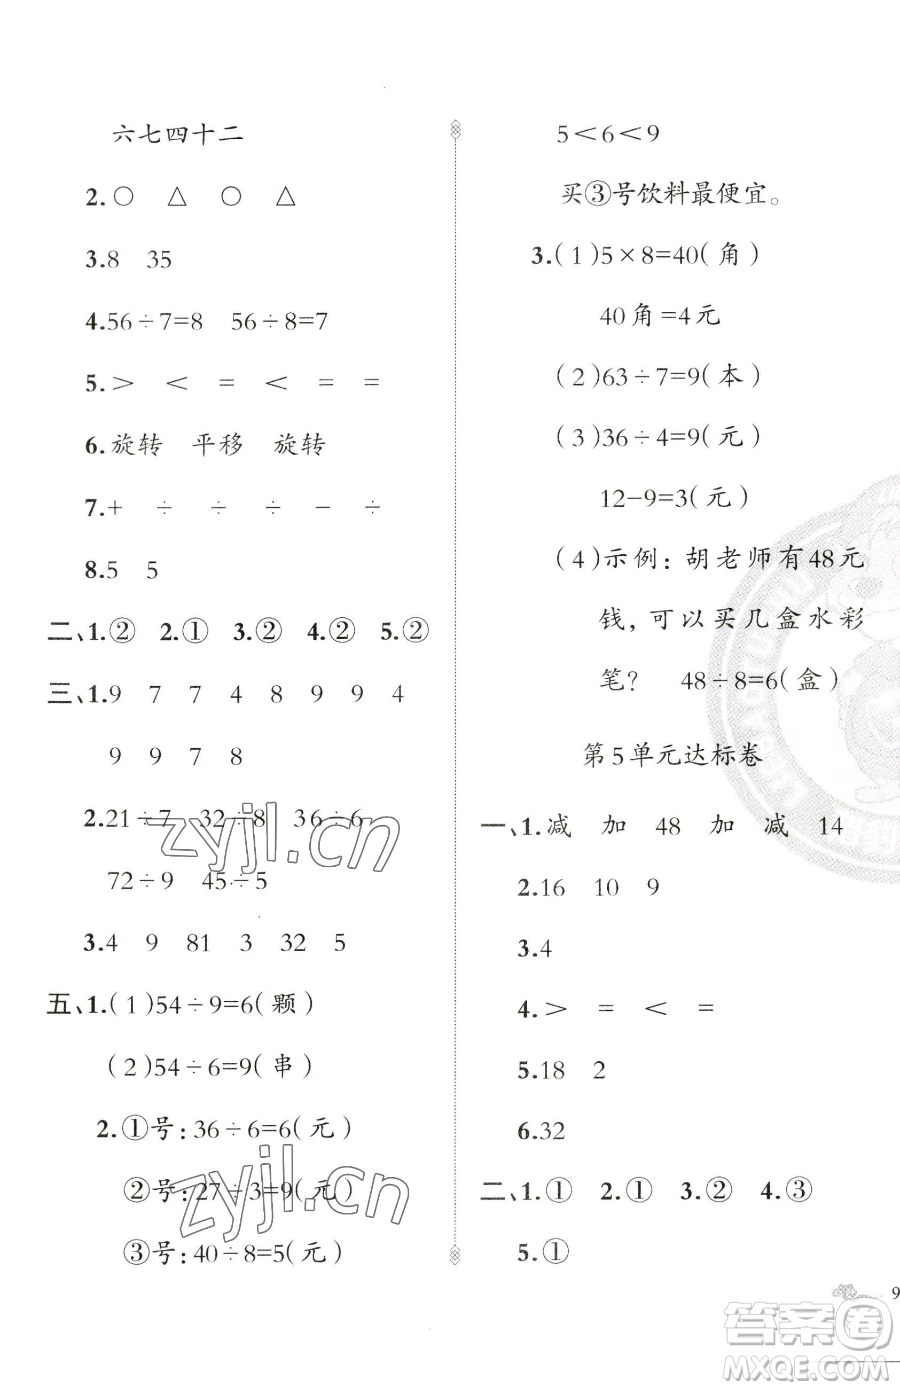 六七四十二
2.○ △ ○ △
3.8 35
4.56÷7=8 56÷8=7
5.＞ ＜ = ＜ = =
6.旋转 平移 旋转
7.+ ÷ ÷ ÷ − ÷
8.5 5
二、1.② 2.① 3.② 4.② 5.②
三、1.9 7 7 4 8 9 9 4
9 9 7 8
2.21÷7 32÷8 36÷6
72÷9 45÷5
3.4 9 81 3 32 5
五、1.(1)54÷9=6(颗)
(2)54÷6=9(串)
2.①号:36÷6=6(元)
②号:27÷3=9(元)
③号:40÷8=5(元)
5＜6＜9
买③号饮料最便宜。
3.(1)5×8=40(角)
40角=4元
(2)63÷7=9(本)
(3)36÷4=9(元)
12−9=3(元)
(4)示例:胡老师有48元
钱,可以买几盒水彩
笔? 48÷8=6(盒)
第5单元达标卷
一、1.减 加 48 加 减 14
2.16 10 9
3.4
4.＞ = ＜ =
5.18 2
6.32
二、1.① 2.① 3.② 4.③
5.①
9
zyjl.cn
zyjl.cn
答案圈
MXQE.COM